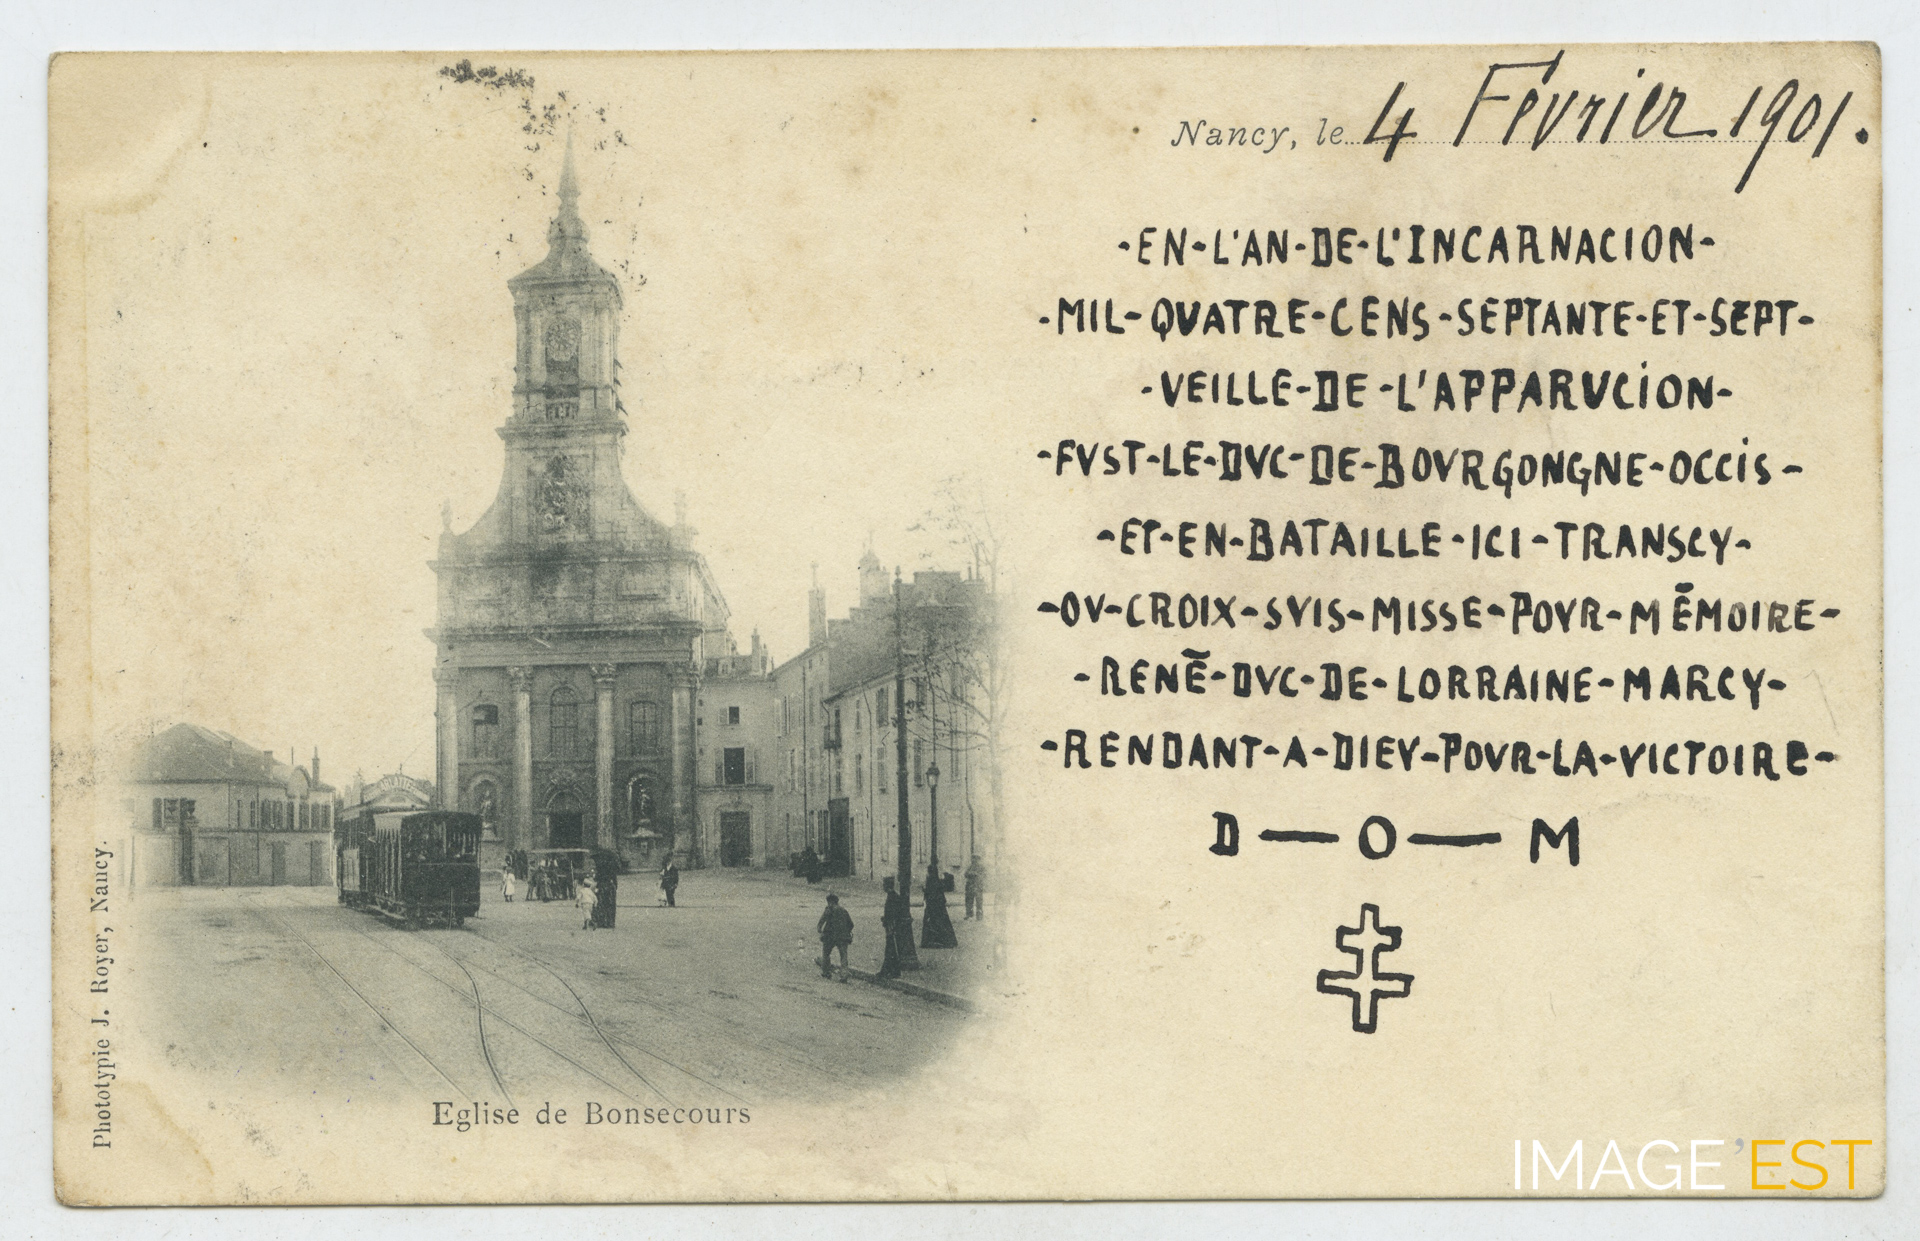 Nancy, le 4 Février 1901.
-EN-L'AN-DE-L'INCARNACION-
-MIL-QVATRE-CENS-SEPTANTE-ET-SEPT-
-VEILLE-DE-L'APPARVCION-
-FVST-LE-DVC-DE-BOVRGONGNE-OCCIS-
-ET-EN-BATAILLE-ICI-TRANSCY-
-OV-CROIX-SVIS-MISSE-POVR-MĒMOIRE-
-RENĒ-DVC-DE-LORRAINE-MARCY-
-RENDANT-A-DIEV-POVR-LA-VICTOIRE-
D — O — M
Eglise de Bonsecours
Phototypie J. Royer, Nancy.
IMAGE'EST